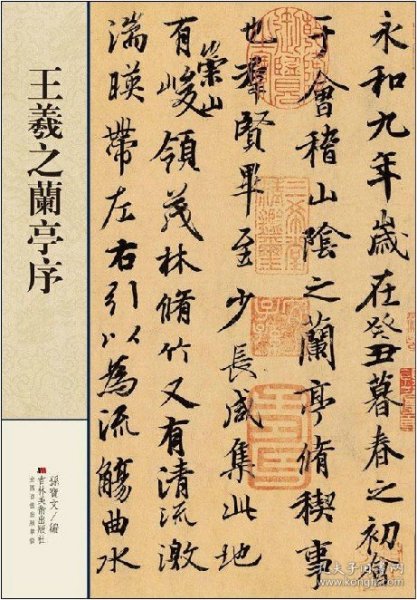 王羲之蘭亭序
孫寶文/編
吉林美術出版社
永和九年歲在癸丑暮春之初會
于會稽山陰之蘭亭脩稧事
也群賢畢至少長咸集此地
有崇山峻領茂林脩竹又有清流激
湍暎帶左右引以為流觴曲水